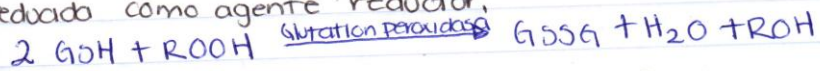 educido como agente reductor.
2 GSH + ROOH Glutation peroxidasa GSSG + H2O + ROH